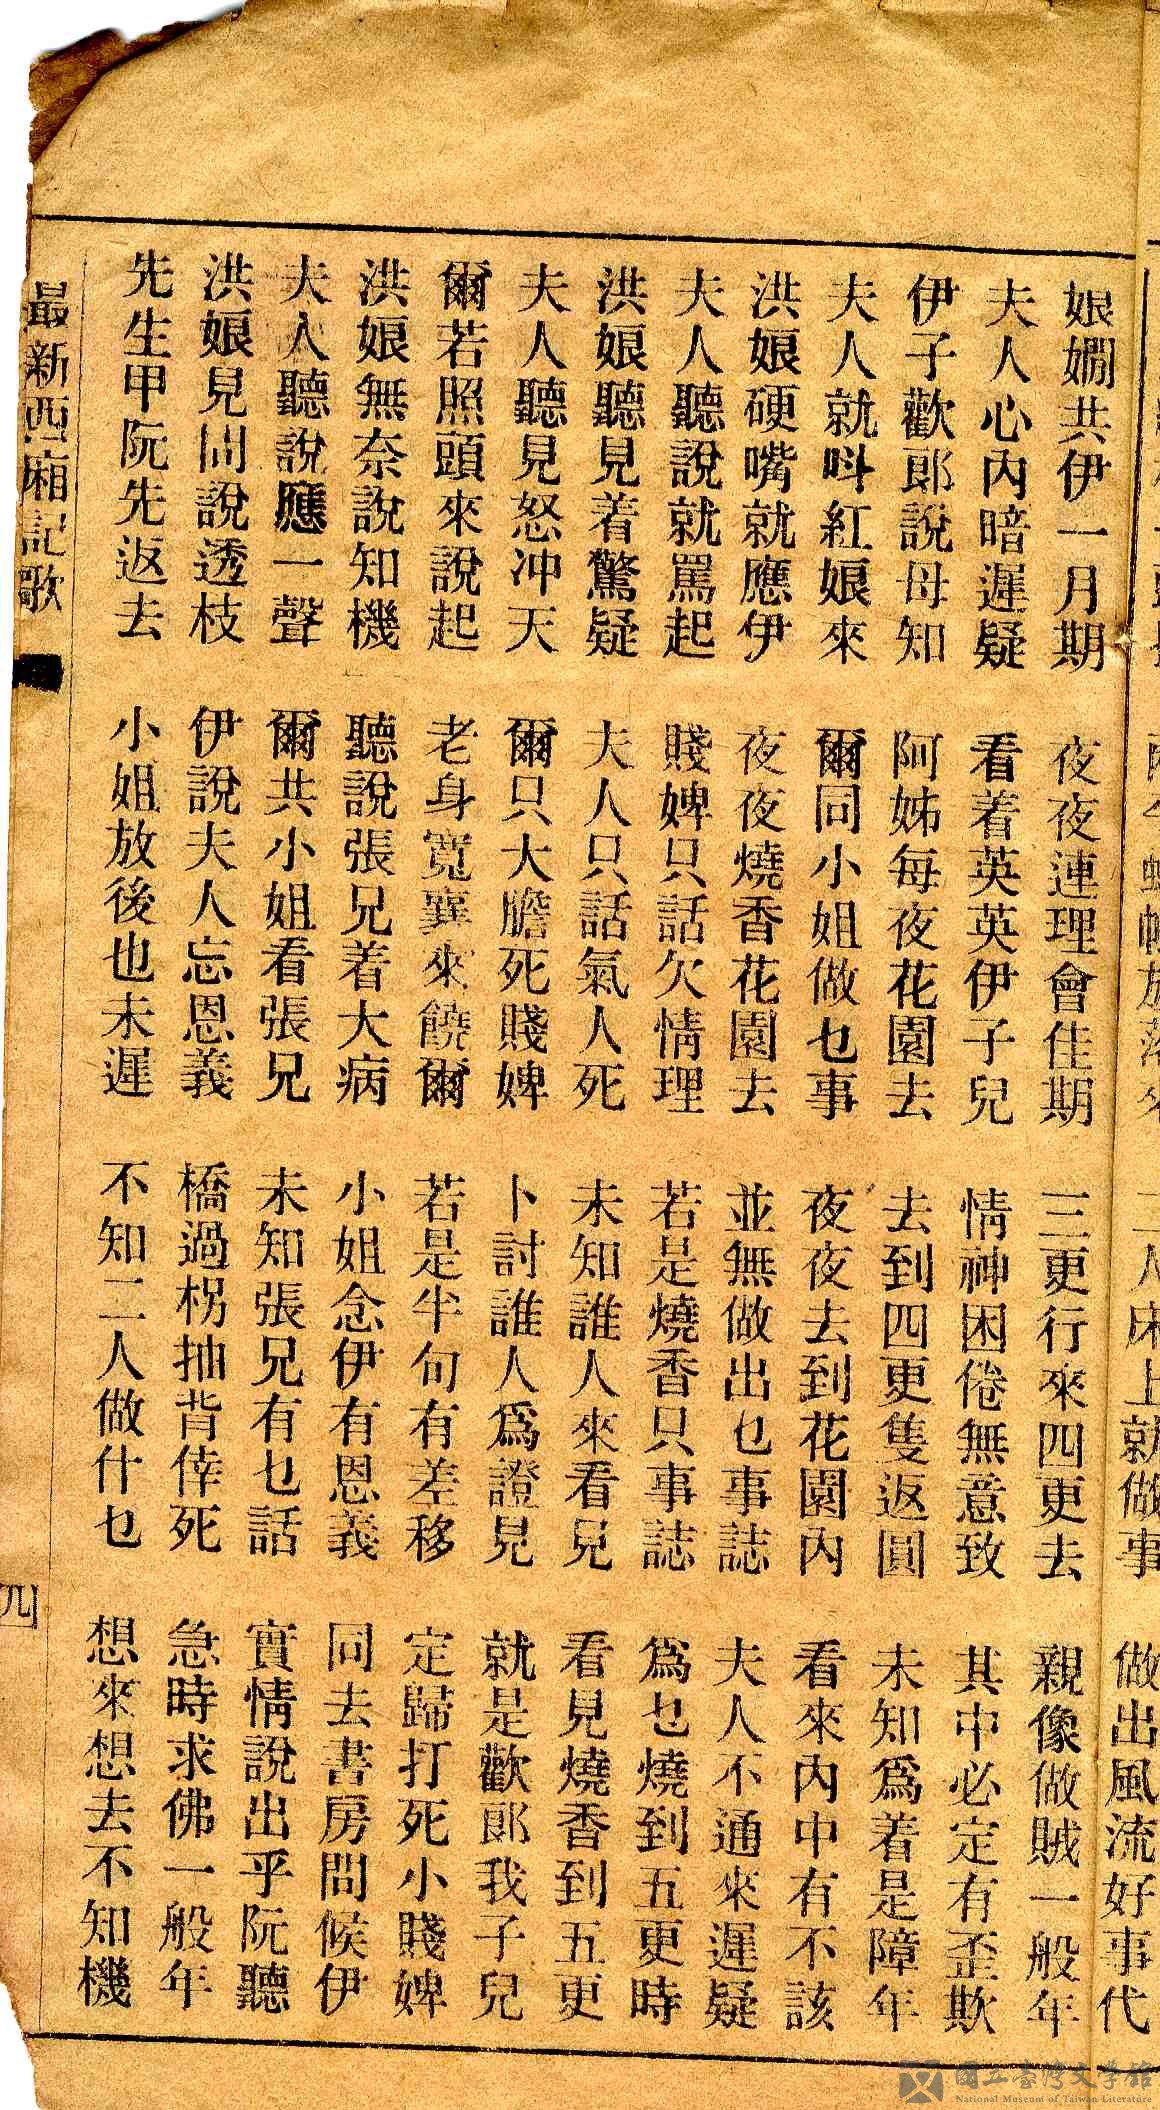 二人床上就做事　做出風流好事代
娘嫺共伊一月期　夜夜連理會佳期　三更行來四更去　親像做賊一般年
夫人心內暗遲疑　看着英英伊子兒　情神困倦無意致　其中必定有歪欺
伊子歡郎說母知　阿姊每夜花園去　去到四更隻返圓　未知為着是障年
夫人就呌紅娘來　爾同小姐做乜事　夜夜去到花園內　看來內中有不該
洪娘硬嘴就應伊　夜夜燒香花園去　並無做出乜事誌　夫人不通來遲疑
夫人聽說就罵起　賤婢只話欠情理　若是燒香只事誌　為乜燒到五更時
洪娘聽見着驚疑　夫人只話氣人死　未知誰人來看見　看見燒香到五更
夫人聽見怒冲天　爾只大膽死賤婢　卜討誰人為證見　就是歡郎我子兒
爾若照頭來說起　老身寬襄來饒爾　若是半句有差移　定歸打死小賤婢
洪娘無奈說知機　聽說張兄着大病　小姐念伊有恩義　同去書房問候伊
夫人聽說應一聲　爾共小姐看張兄　未知張兄有乜話　實情說出乎阮聽
洪娘見問說透枝　伊說夫人忘恩義　橋過枴抽背倖死　急時求佛一般年
先生甲阮先返去　小姐放後也未遲　不知二人做什乜　想來想去不知機
最新西廂記歌　四
國立臺灣文學館
National Museum of Taiwan Literature